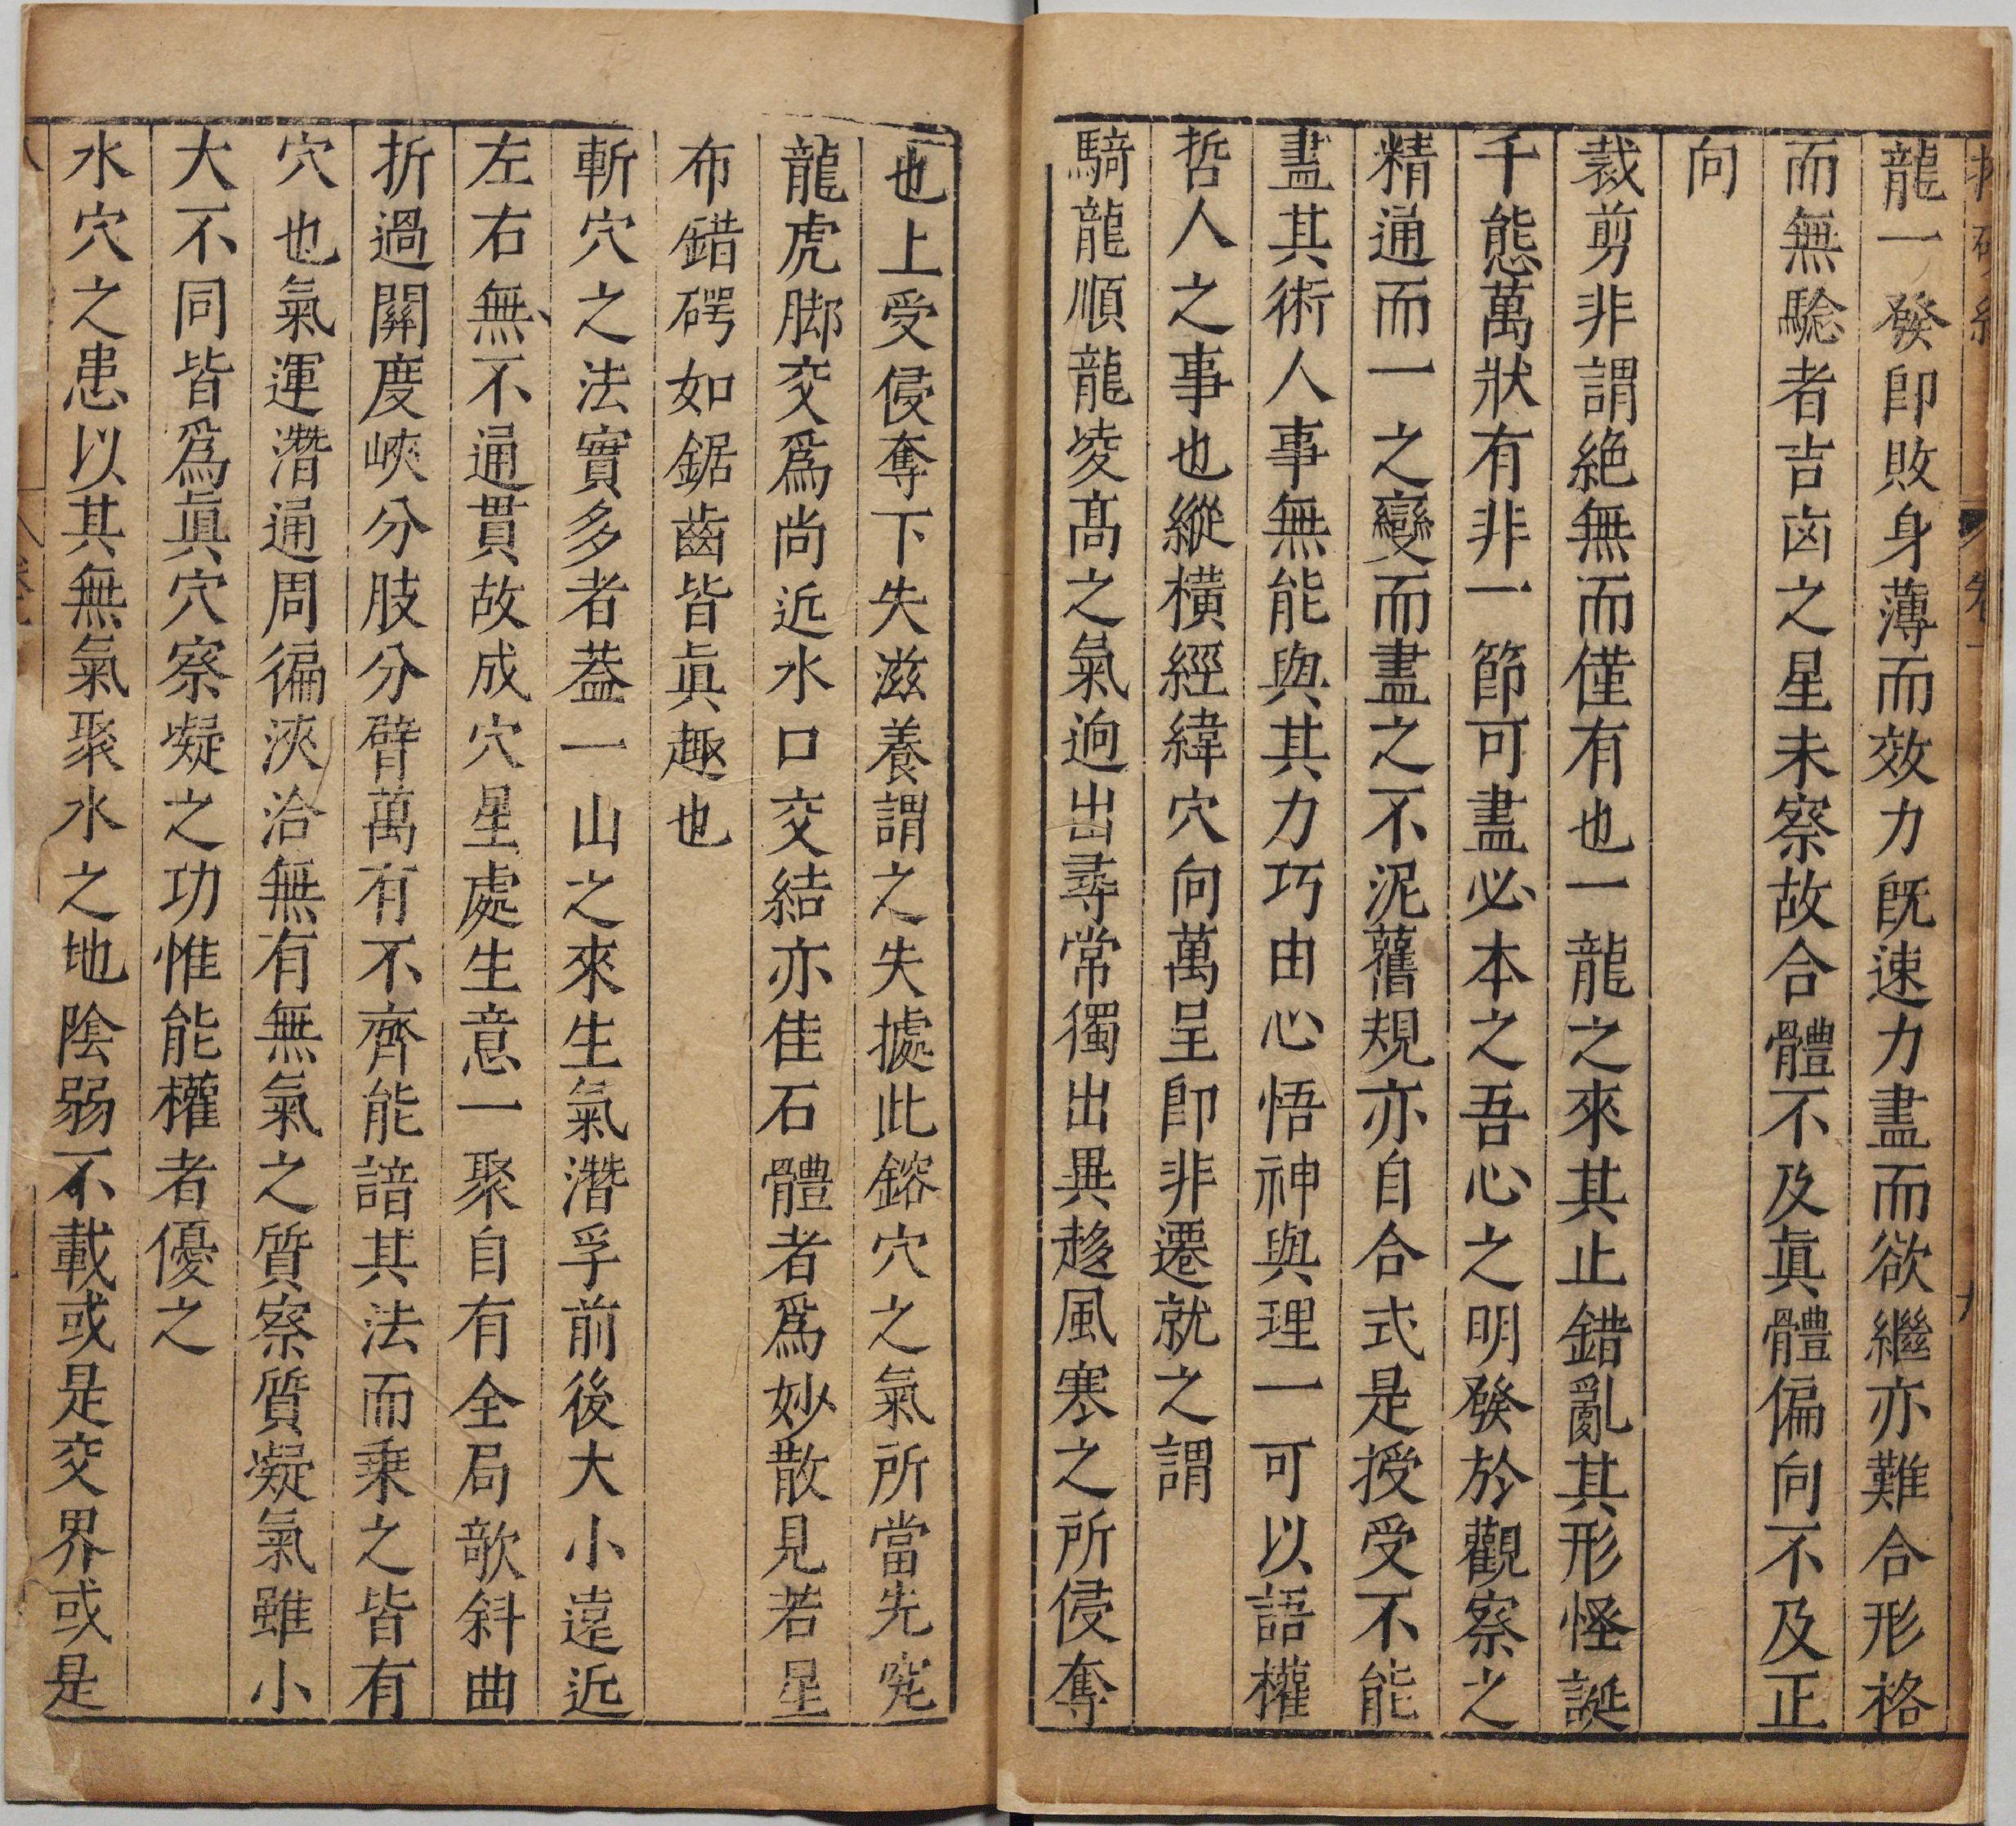 龍一發卽敗身薄而效力旣速力盡而欲繼亦難合形格
而無驗者吉凶之星未察故合體不及眞體偏向不及正
向
裁剪非謂絶無而僅有也一龍之來其止錯亂其形怪誕
千態萬狀有非一節可盡必本之吾心之明發於觀察之
精通而一之變而盡之不泥舊規亦自合式是授受不能
盡其術人事無能與其力巧由心悟神與理一可以語權
哲人之事也縱橫經緯穴向萬呈卽非遷就之謂
騎龍順龍凌高之氣逈出尋常獨出異趍風寒之所侵奪
也上受侵奪下失滋養謂之失據此鎔穴之氣所當先究
龍虎脚交爲尚近水口交結亦佳石體者爲妙散見若星
布錯碍如鋸齒皆眞趣也
斬穴之法實多者葢一山之來生氣潛孚前後大小遠近
左右無不通貫故成穴星處生意一聚自有全局欹斜曲
折過關度峽分肢分臂萬有不齊能諳其法而乘之皆有
穴也氣運潛通周徧浹洽無有無氣之質察質凝氣雖小
大不同皆爲眞穴察凝之功惟能權者優之
水穴之患以其無氣聚水之地陰弱不載或是交界或是